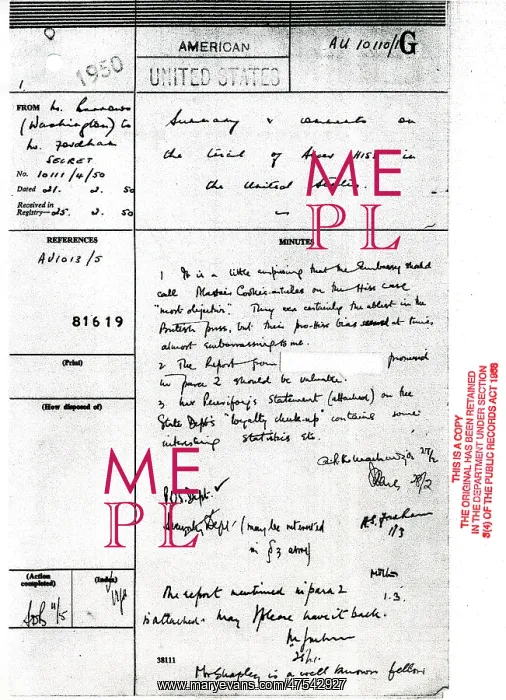 AMERICAN
AU 10110/1G
1950
UNITED STATES
1,
FROM Mr. Burrows
(Washington) to
Mr. Fordham
SECRET
No. 10111/4/50
Dated 21. 2. 50
Received in
Registry—25. 2. 50
Summary & comments on
the trial of Alger HISS in
the United States.
REFERENCES
AU1013/5
81619
(Print)
(How disposed of)
(Action
completed)
(Index)
MINUTES
1 It is a little surprising that the Embassy should
call Alastair Cooke's articles on the Hiss case
"most objective". They are certainly the ablest in the
British press, but their pro-Hiss bias at times,
almost embarrassing to me.
2. The Report from promised
in para 2 should be valuable.
3. Mr Peurifoy's statement (attached) on the
State Dept's "loyalty check-up" contains some
interesting statistics etc.
27/2
28/2
P.U.S. Dept.
Security Dept. (may be interested
in § 3 above)
1/3
1.3.
The report mentioned in para 2
is attached. May please have it back.
38111
Mr is a well known fellow
ME
PL
ME
PL
THIS IS A COPY
THE ORIGINAL HAS BEEN RETAINED
IN THE DEPARTMENT UNDER SECTION
3(4) OF THE PUBLIC RECORDS ACT 1958
www.maryevans.com/47542927